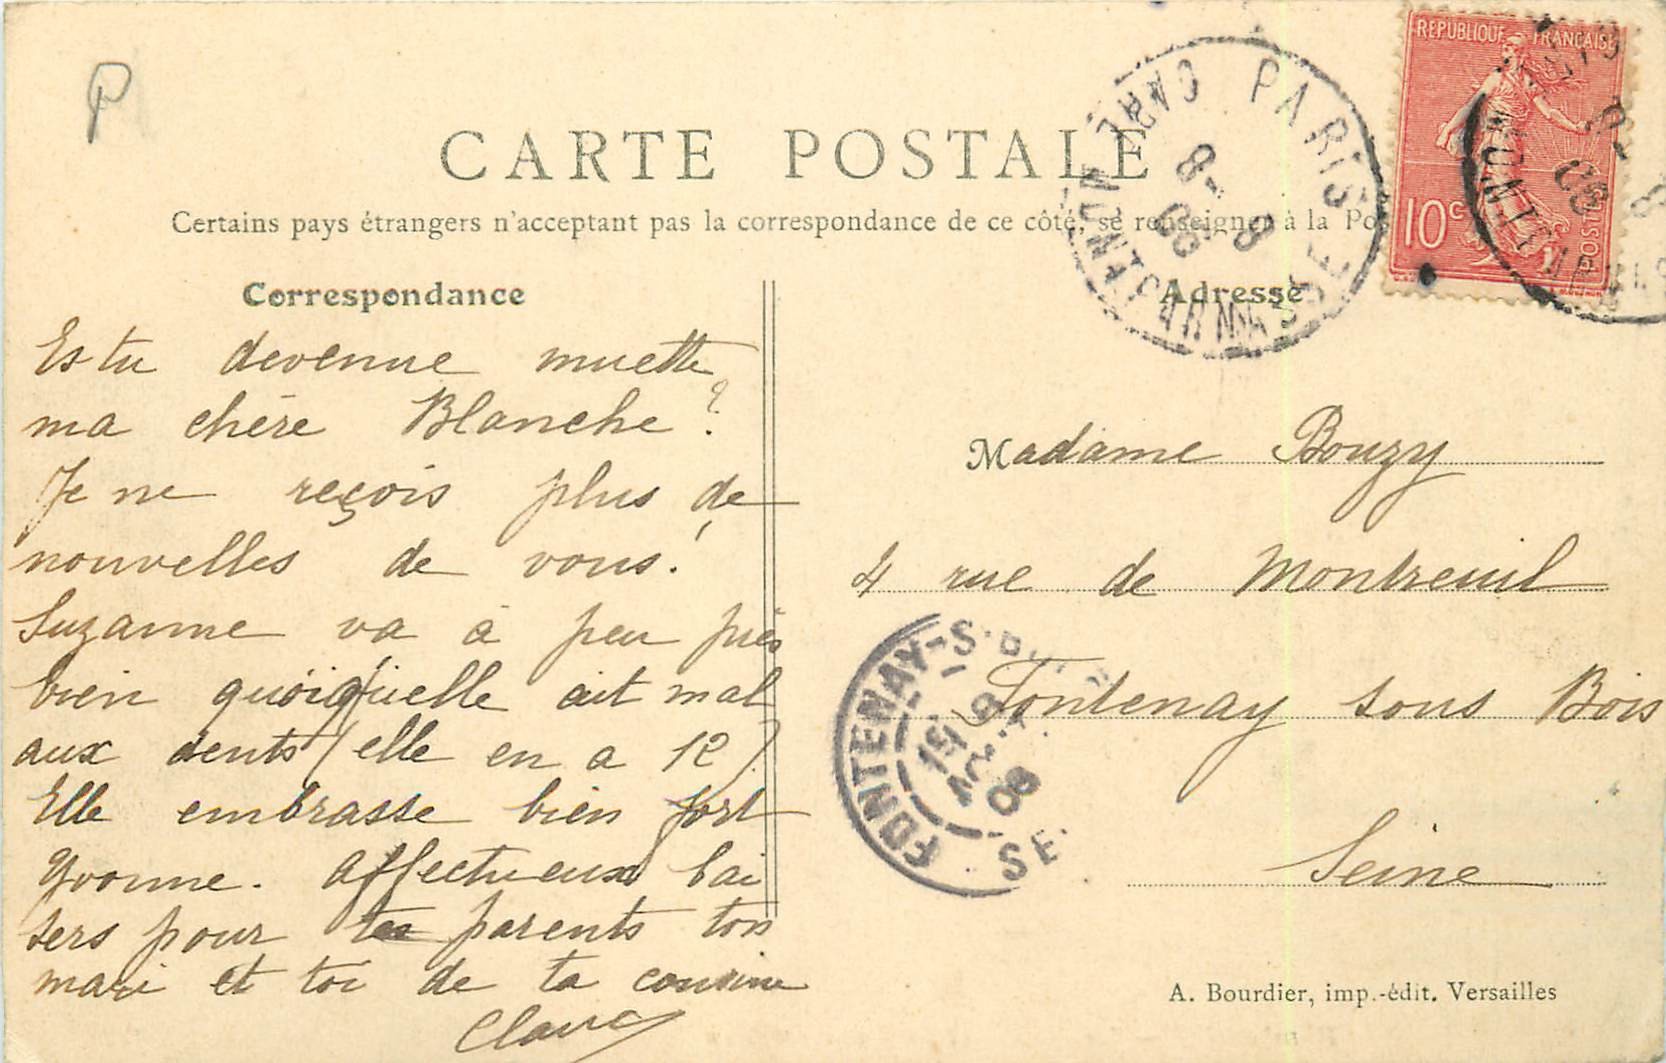 P
CARTE POSTALE
Certains pays étrangers n'acceptant pas la correspondance de ce côté, se renseigner à la Po
Correspondance
Es tu devenue muette
ma chère Blanche ?
Je ne reçois plus de
nouvelles de vous !
Suzanne va à peu près
bien quoiqu'elle ait mal
aux dents (elle en a 12)
Elle embrasse bien fort
Yvonne. Affectueux bai
sers pour tes parents ton
mari et toi de ta cousine
Claire
REPUBLIQUE FRANÇAISE
10c
POSTES
PARIS
8 - 8
08
Adresse
Madame Bouzy
4 rue de Montreuil
Fontenay sous Bois
Seine
FONTENAY-S-B
15 9
08
SE
A. Bourdier, imp.-édit. Versailles